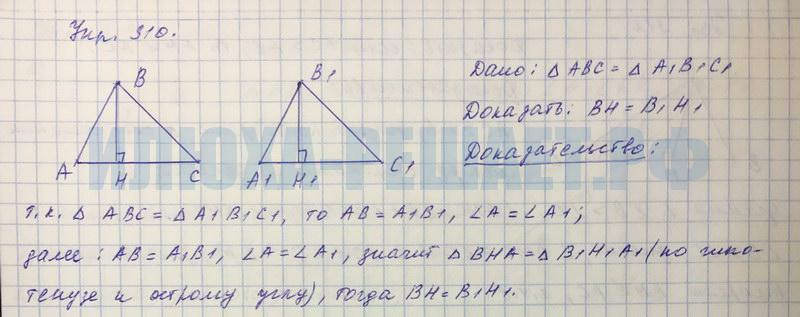 Упр. 310.
B
B1
A
H
C
A1
H1
C1
Дано: △ ABC = △ A1B1C1
Доказать: BH = B1H1
Доказательство:
ИЛЮХА-РЕШАЕТ.РФ
т.к. △ ABC = △ A1B1C1, то AB = A1B1, ∠A = ∠A1;
далее: AB = A1B1, ∠A = ∠A1, значит △ BHA = △ B1H1A1 (по гипо-
тенузе и острому углу), тогда BH = B1H1.